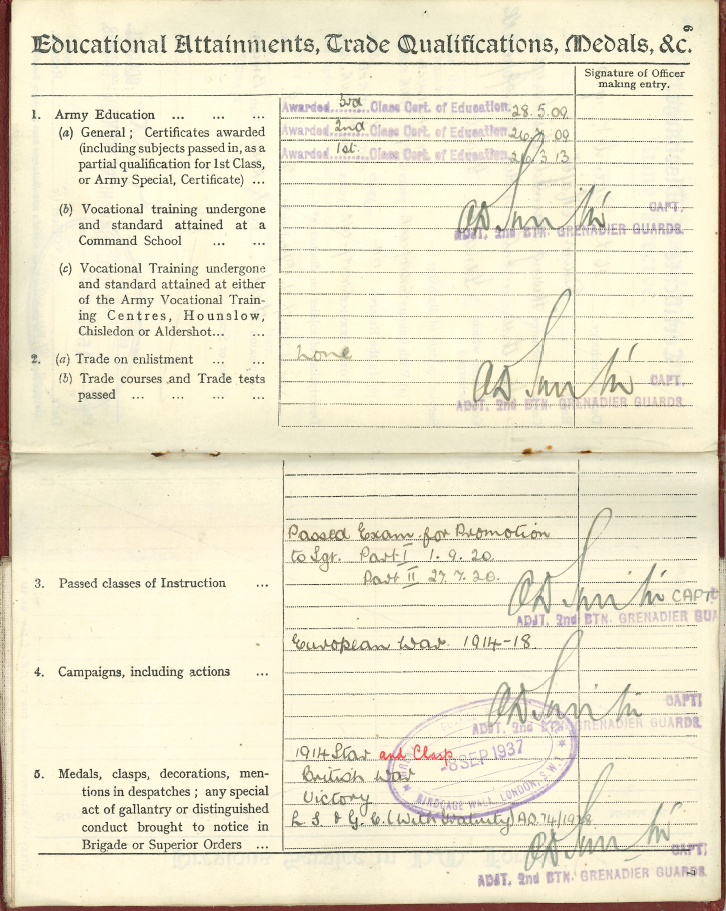 9
Educational Attainments, Trade Qualifications, Medals, &c.
Signature of Officer
making entry.
1. Army Education ... ... ...
(a) General; Certificates awarded
(including subjects passed in, as a
partial qualification for 1st Class,
or Army Special, Certificate) ...
Awarded 3rd Class Cert. of Education. 28.5.09
Awarded 2nd Class Cert. of Education. 09
Awarded 1st. Class Cert. of Education. 3 13
(b) Vocational training undergone
and standard attained at a
Command School ... ...
CAPT.
ADJT. 2nd BTN. GRENADIER GUARDS.
(c) Vocational Training undergone
and standard attained at either
of the Army Vocational Train-
ing Centres, Hounslow,
Chisledon or Aldershot... ...
2. (a) Trade on enlistment ... ...
none
(b) Trade courses and Trade tests
passed ... ... ... ...
CAPT.
ADJT. 2nd BTN. GRENADIER GUARDS.
Passed Exam. for Promotion
to Sgt. Part I 1.9.20.
Part II 27.7.20.
3. Passed classes of Instruction ...
CAPT
ADJT. 2nd BTN. GRENADIER GUA
European War 1914-18.
4. Campaigns, including actions ...
CAPT
ADJT. 2nd BTN. GRENADIER GUARDS.
1914 Star and Clasp
-8 SEP 1937
BIRDCAGE WALK, LONDON, S.W.1
British War
Victory
L S & G.C. (With Gratuity) A.O. 74/1928
5. Medals, clasps, decorations, men-
tions in despatches; any special
act of gallantry or distinguished
conduct brought to notice in
Brigade or Superior Orders ...
CAPT
ADJT. 2nd BTN. GRENADIER GUARDS.